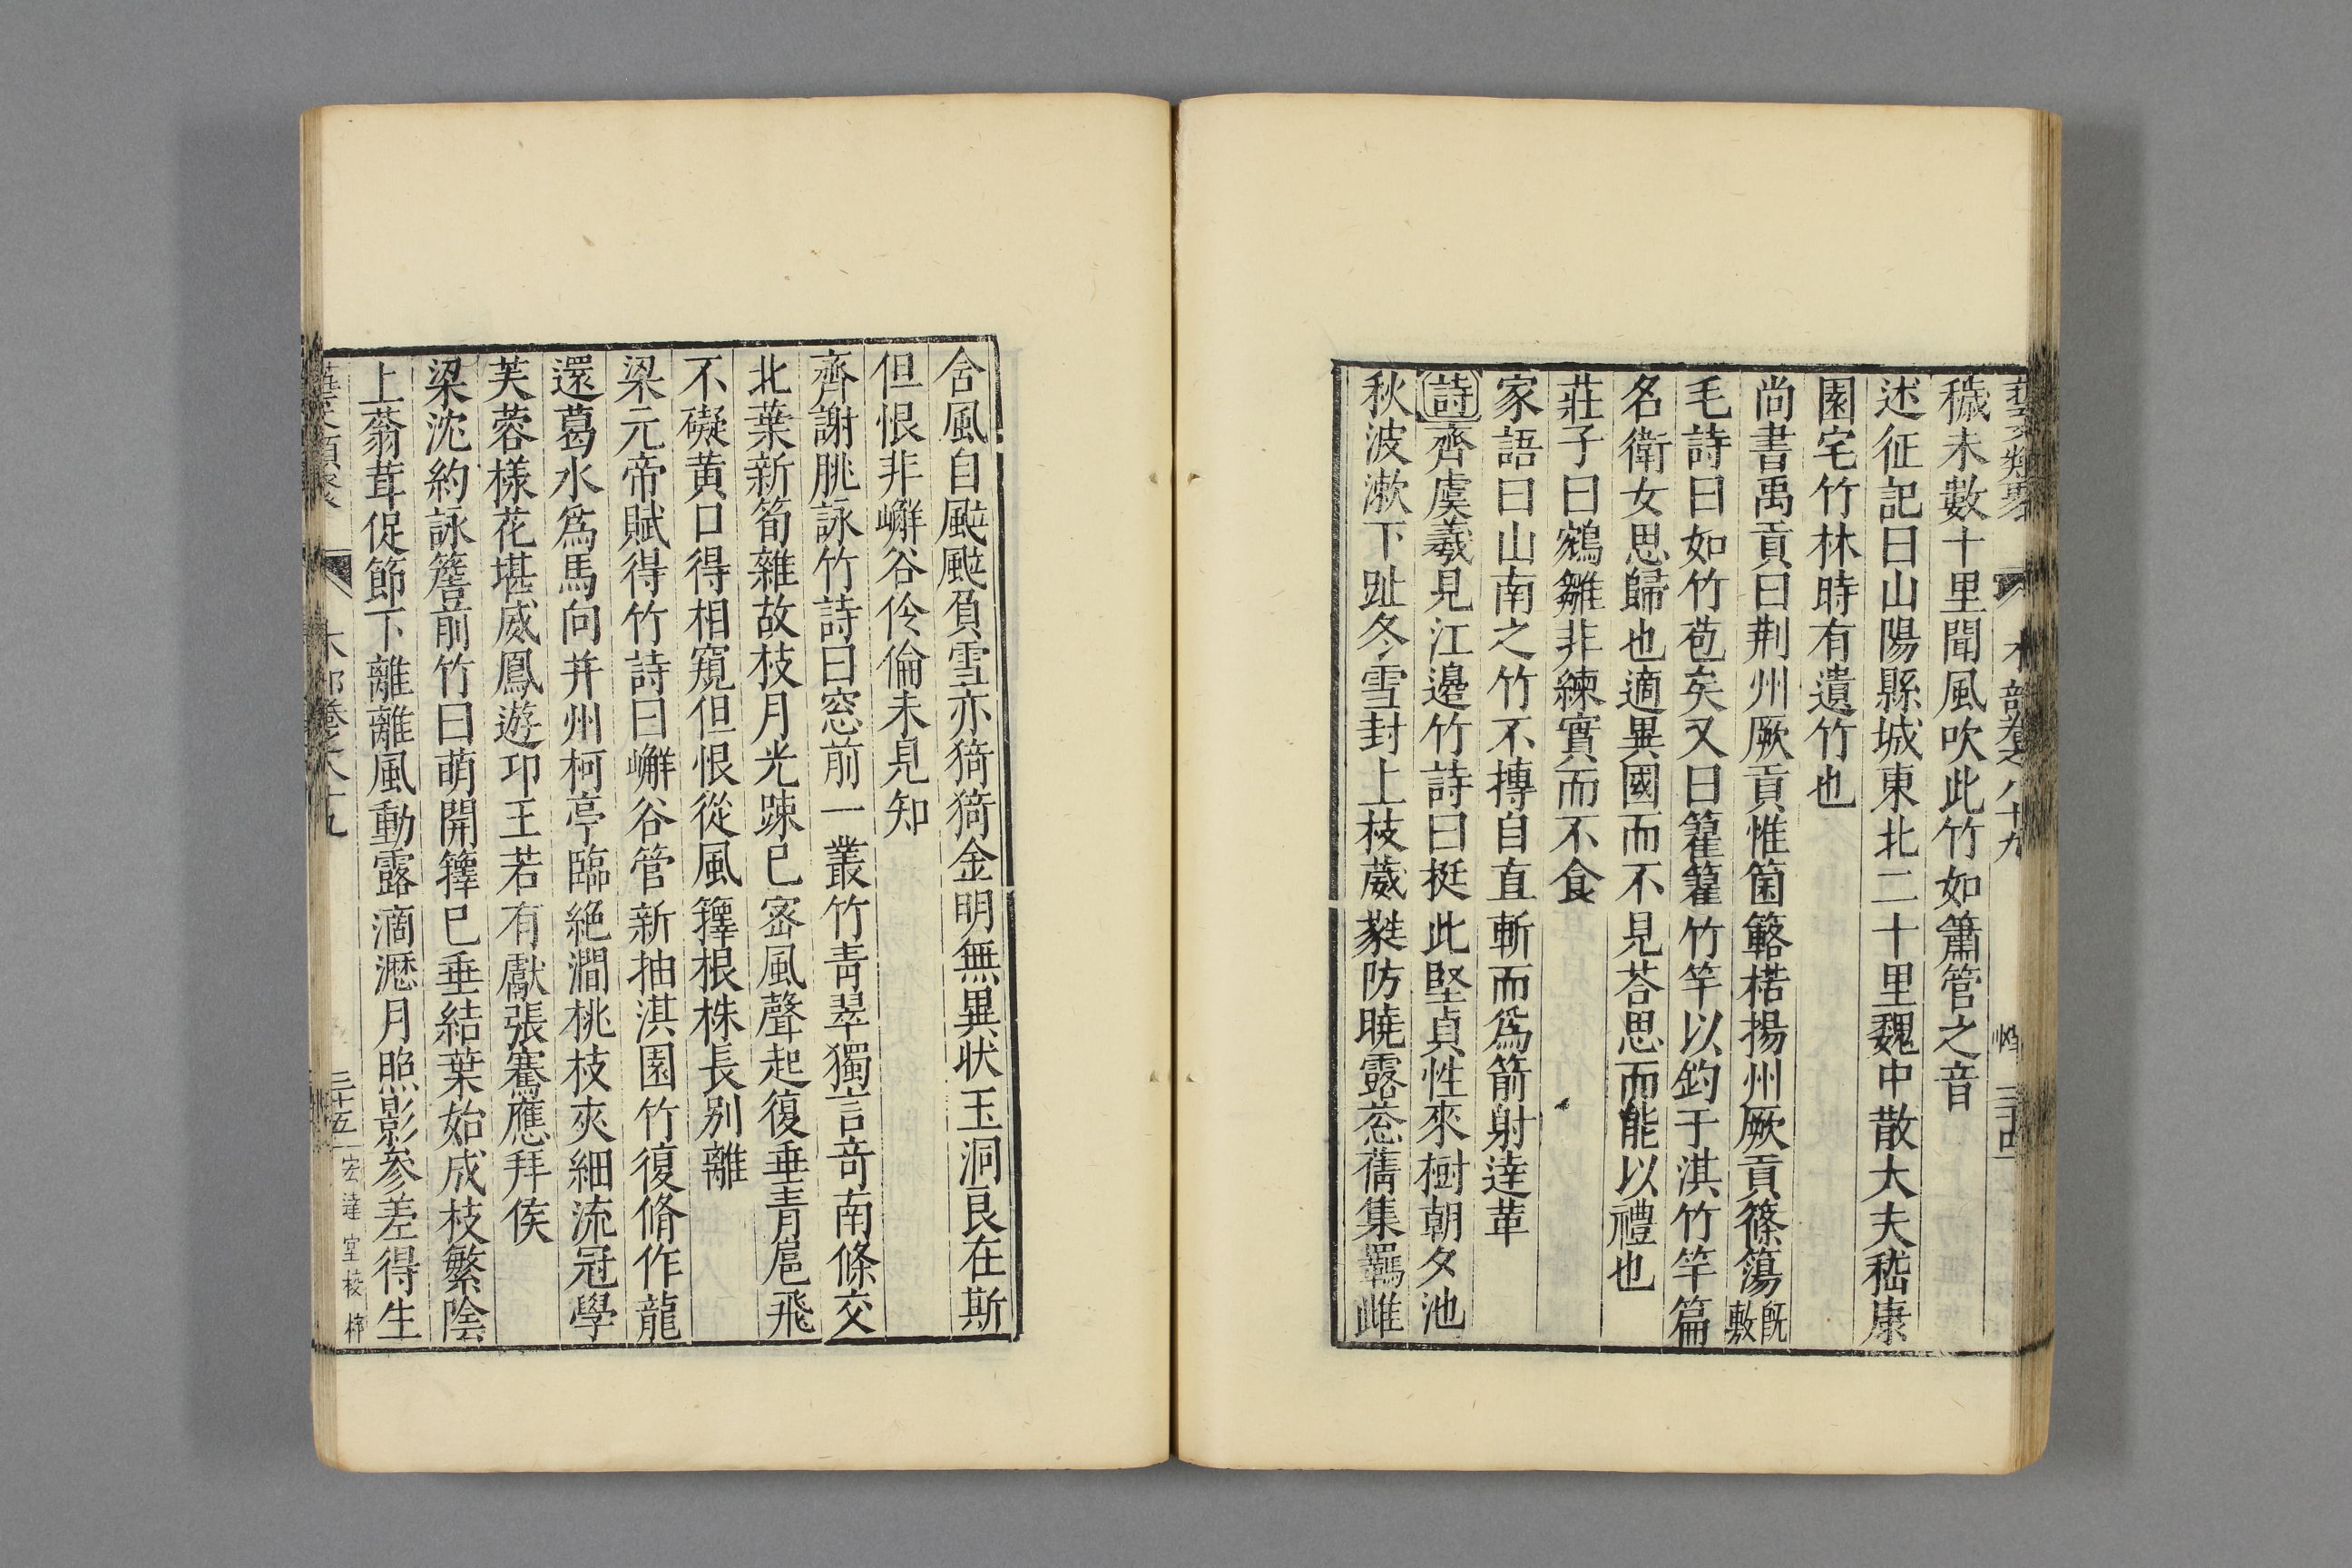 藝文類聚 木部卷之八十九 三十四
穢未數十里聞風吹此竹如簫管之音
述征記曰山陽縣城東北二十里魏中散大夫嵇康
園宅竹林時有遺竹也
尚書禹貢曰荆州厥貢惟箘簵楛揚州厥貢篠簜既敷
毛詩曰如竹苞矣又曰籊籊竹竿以釣于淇竹竿篇
名衛女思歸也適異國而不見荅思而能以禮也
莊子曰鵷雛非練實而不食
家語曰山南之竹不摶自直斬而爲箭射逹革
詩齊虞羲見江邊竹詩曰挺此堅貞性來樹朝夕池
秋波漱下趾冬雪封上枝葳蕤防曉露葱蒨集羇雌
含風自颸颸負雪亦猗猗金明無異状玉洞良在斯
但恨非嶰谷伶倫未見知
齊謝朓詠竹詩曰窓前一叢竹青翠獨言竒南條交
北葉新筍雜故枝月光踈已宻風聲起復垂青扈飛
不礙黄口得相窺但恨從風籜根株長别離
梁元帝賦得竹詩曰嶰谷管新抽淇園竹復脩作龍
還葛水爲馬向并州柯亭臨絶澗桃枝夾細流冠學
芙蓉樣花堪威鳳遊卭王若有獻張騫應拜侯
梁沈約詠簷前竹曰萌開籜已垂結葉始成枝繁陰
上蓊茸促節下離離風動露滴瀝月照影参差得生
藝文類聚 木部卷之八十九 三十五 宏達堂校梓